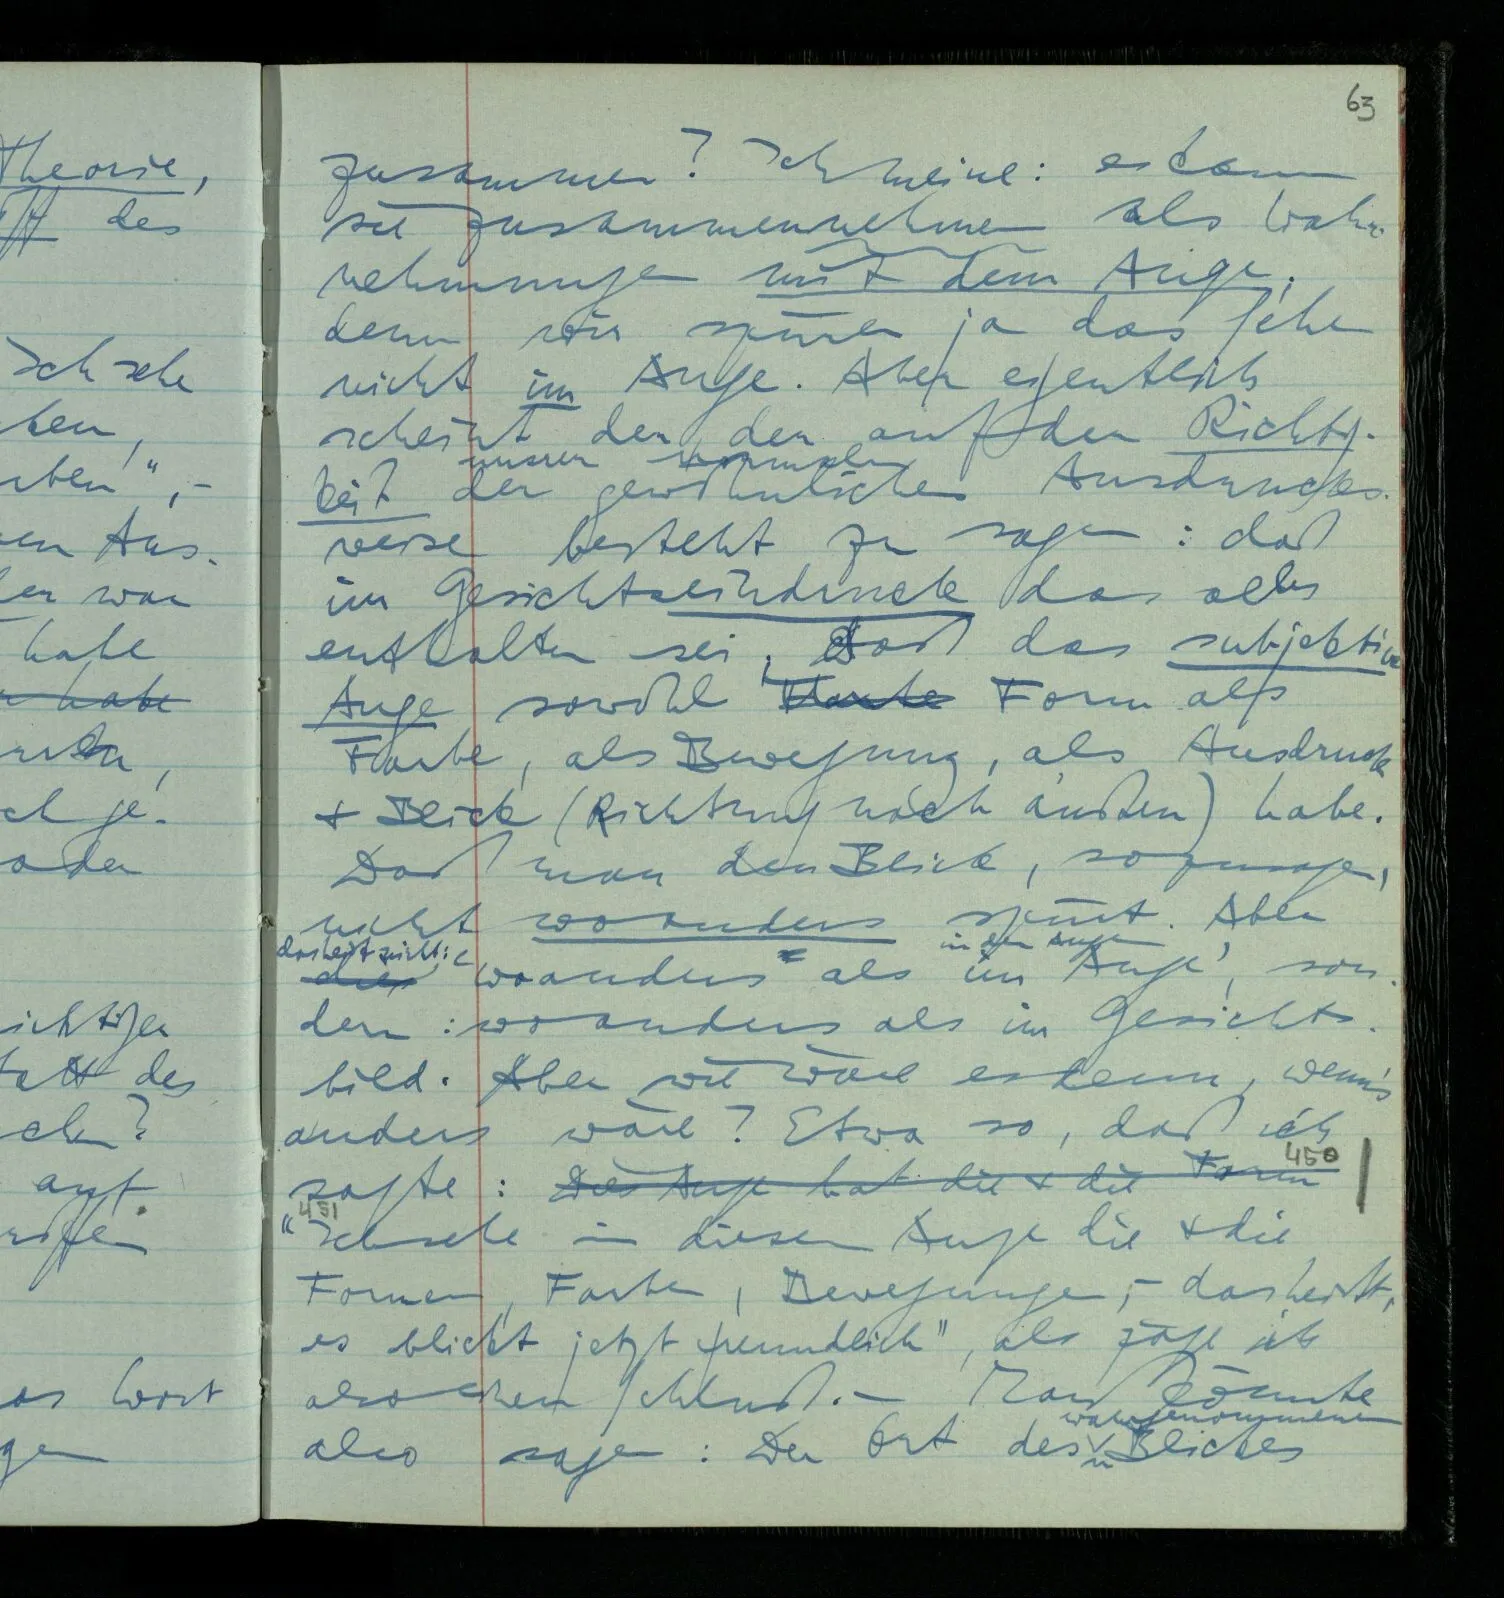 63
zusammen? Ich meine: es kann
sie zusammennehmen als Wahr-
nehmungen mit dem Auge;
denn wir spüren ja das Sehen
nicht im Auge. Aber eigentlich
scheint der, der auf der Richtig-
unsrer normalen
keit der gewöhnlichen Ausdrucks-
weise besteht zu sagen: daß
im Gesichtseindruck das alles
enthalten sei; daß das subjektive
Auge sowohl Farbe Form als
Farbe, als Bewegung, als Ausdruck
& Blick (Richtung nach außen) habe.
Daß man den Blick, sozusagen,
nicht woanders spürt. Aber
das heißt nicht: in den Augen
dies 'woanders als im Auge', son-
dern: woanders als im Gesichts-
bild. Aber wie wäre es denn, wenn's
anders wäre? Etwa so, daß ich
450
sagte: Dies Auge hat die & die Form
451
"Ich sehe in diesem Auge die & die
Formen, Farben, Bewegungen, – das heißt,
es blickt jetzt freundlich", als zöge ich
also einen Schluß. – Man könnte
wahrgenommenen
also sagen: Der Ort des Blickes
Theorie,
des
Ich sehe
ben,
rben",–
en Aus-
er war
habe
habe
ch ge-
oder
ichtigen
statt des
ch?
auf
as Wort
gen